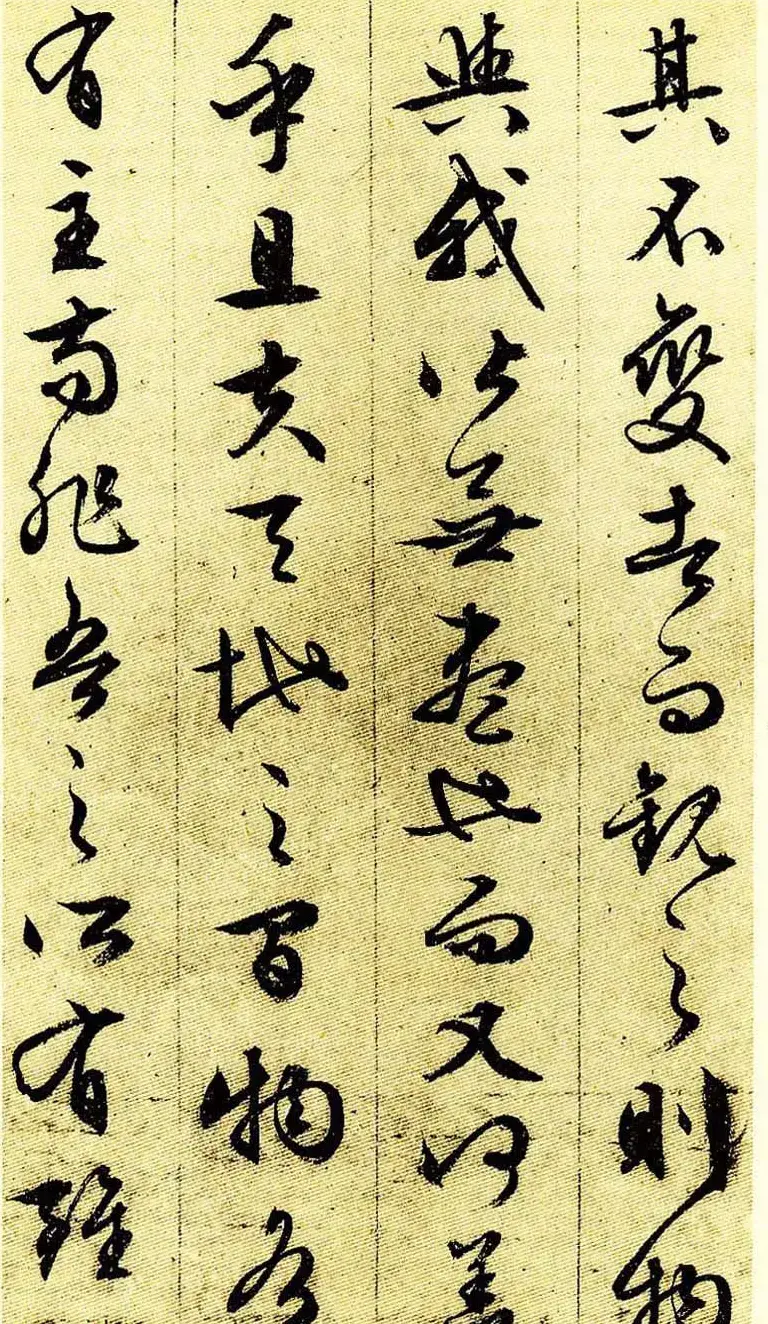 其不變者而觀之則物
與我皆無盡也而又何羨
乎且夫天地之間物各
有主苟非吾之所有雖